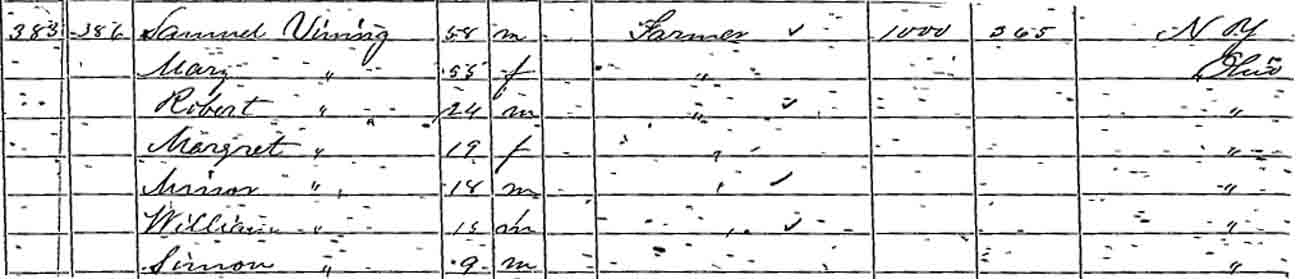 383 386 Samuel Vining 58 m Farmer ✓ 1000 365 N Y
Mary " 55 f " Ohio
Robert " 24 m " ✓ "
Margret " 19 f " "
Minor " 18 m " ✓ "
William " 15 m " ✓ "
Simon " 9 m "